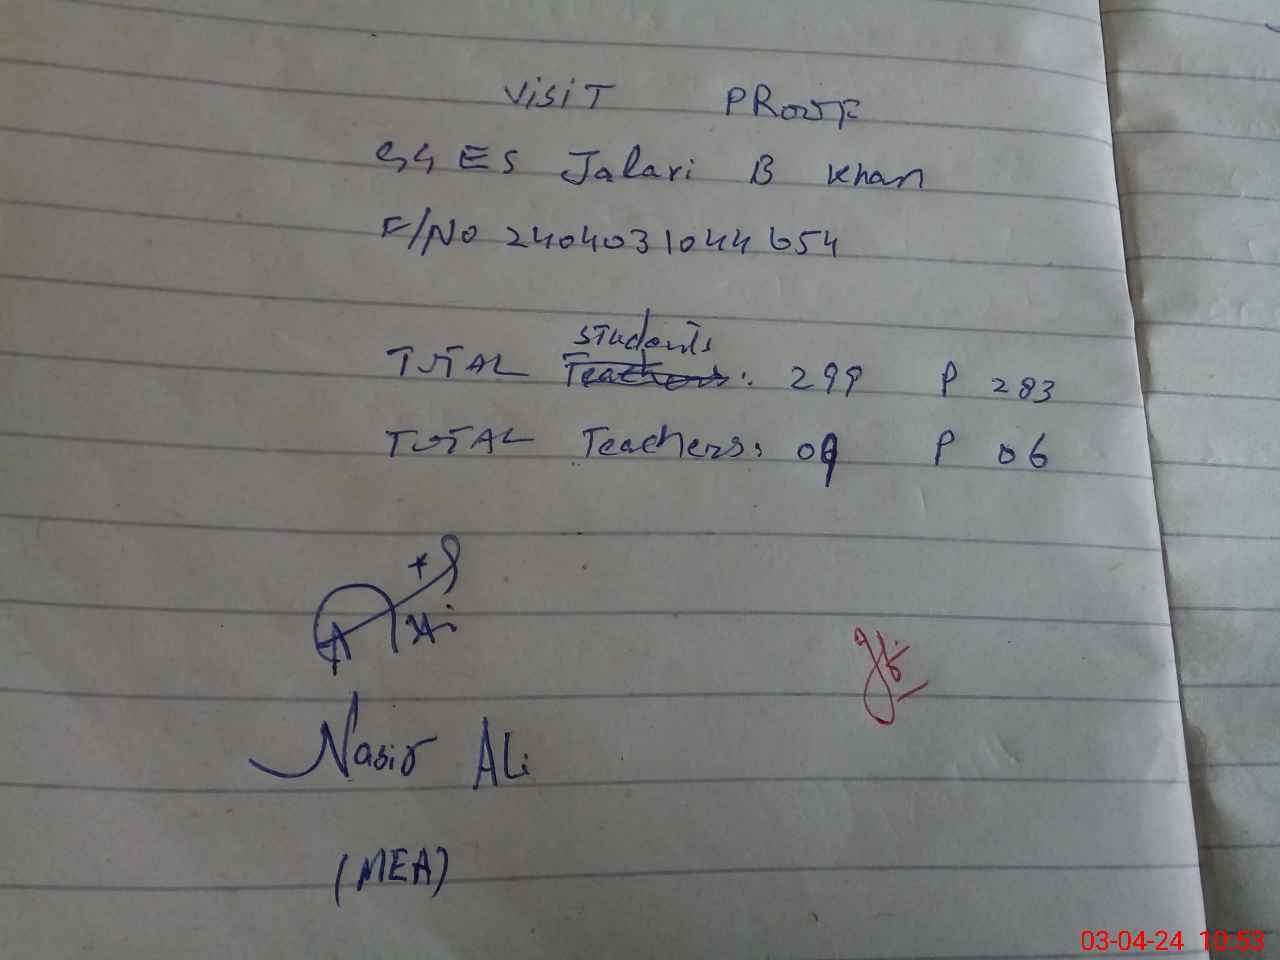 VISIT PROOF
GGES Jalari B Khan
F/NO 2404031044654
TOTAL Students : 299 P 283
TOTAL Teachers: 09 P 06
Nasir Ali
(MEA)
03-04-24 10:53